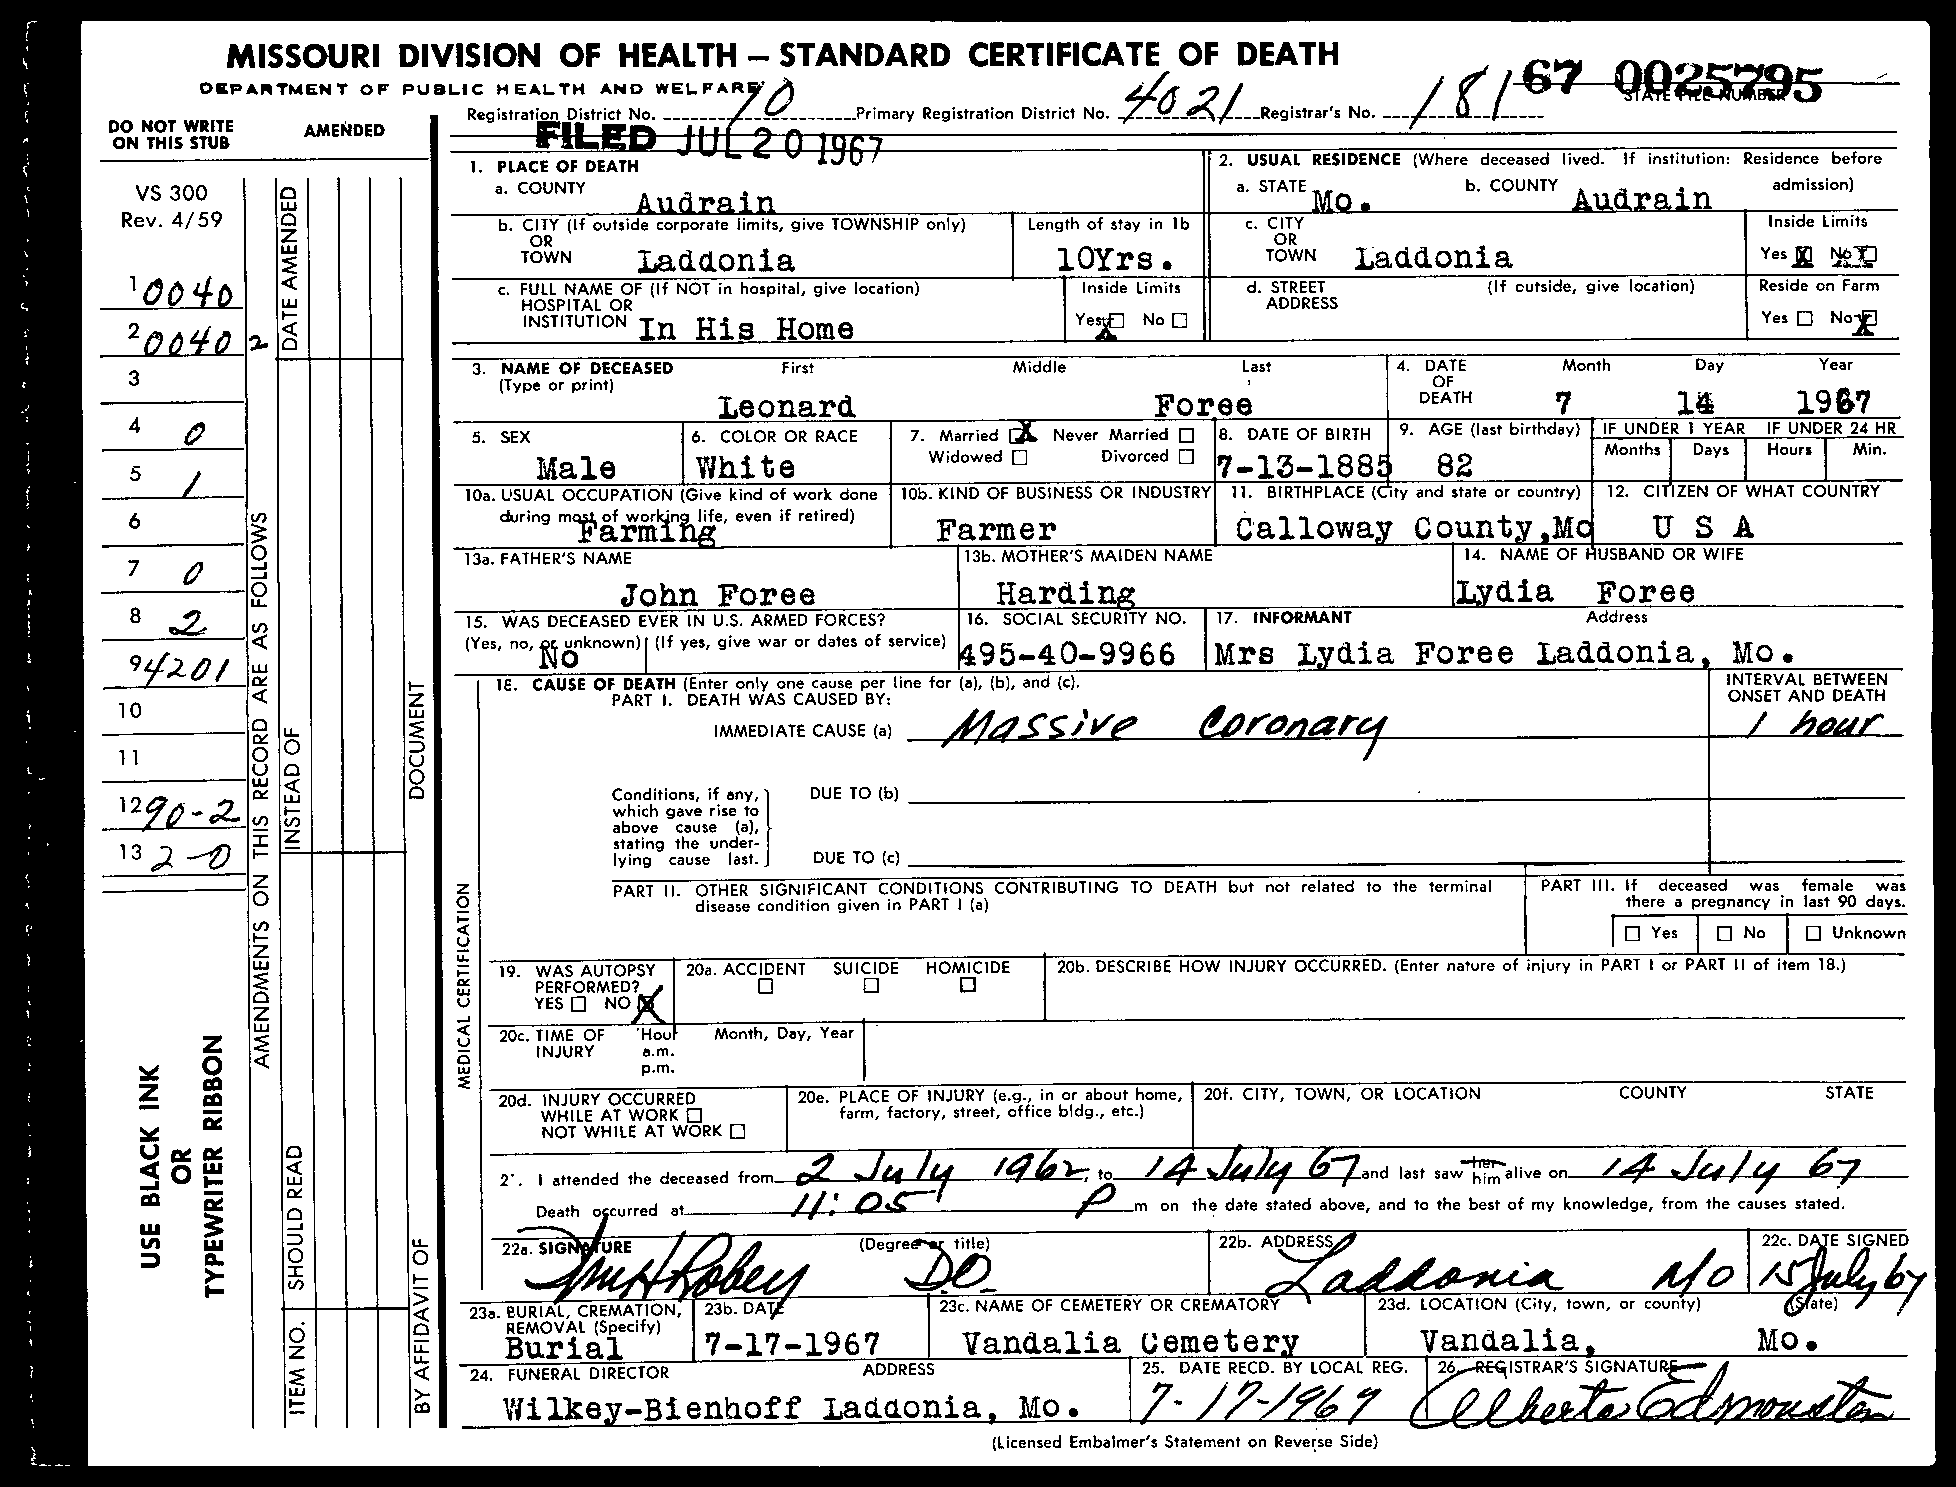 MISSOURI DIVISION OF HEALTH — STANDARD CERTIFICATE OF DEATH
DEPARTMENT OF PUBLIC HEALTH AND WELFARE
67 0025795
STATE FILE NUMBER
Registration District No. 10 Primary Registration District No. 4021 Registrar's No. 181
FILED JUL 20 1967
DO NOT WRITE
ON THIS STUB
AMENDED
VS 300
Rev. 4/59
1 0040
2 0040 2
3
4 0
5 1
6
7 0
8 2
9 4201
10
11
12 90-2
13 2-0
USE BLACK INK
OR
TYPEWRITER RIBBON
AMENDMENTS ON THIS RECORD ARE AS FOLLOWS
DATE AMENDED
INSTEAD OF
DOCUMENT
SHOULD READ
ITEM NO.
BY AFFIDAVIT OF
1. PLACE OF DEATH
a. COUNTY Audrain
2. USUAL RESIDENCE (Where deceased lived. If institution: Residence before admission)
a. STATE Mo. b. COUNTY Audrain
b. CITY (If outside corporate limits, give TOWNSHIP only)
OR
TOWN Laddonia
Length of stay in 1b
10Yrs.
c. CITY
OR
TOWN Laddonia
Inside Limits
Yes X No
c. FULL NAME OF (If NOT in hospital, give location)
HOSPITAL OR
INSTITUTION In His Home
Inside Limits
Yes X No
d. STREET
ADDRESS
(If outside, give location)
Reside on Farm
Yes No X
3. NAME OF DECEASED
(Type or print)
First Middle Last
Leonard Foree
4. DATE
OF
DEATH
Month Day Year
7 14 1967
5. SEX
Male
6. COLOR OR RACE
White
7. Married X Never Married
Widowed Divorced
8. DATE OF BIRTH
7-13-1885
9. AGE (last birthday)
82
IF UNDER 1 YEAR IF UNDER 24 HR
Months Days Hours Min.
10a. USUAL OCCUPATION (Give kind of work done
during most of working life, even if retired)
Farming
10b. KIND OF BUSINESS OR INDUSTRY
Farmer
11. BIRTHPLACE (City and state or country)
Calloway County,Mo
12. CITIZEN OF WHAT COUNTRY
U S A
13a. FATHER'S NAME
John Foree
13b. MOTHER'S MAIDEN NAME
Harding
14. NAME OF HUSBAND OR WIFE
Lydia Foree
15. WAS DECEASED EVER IN U.S. ARMED FORCES?
(Yes, no, or unknown) (If yes, give war or dates of service)
No
16. SOCIAL SECURITY NO.
495-40-9966
17. INFORMANT Address
Mrs Lydia Foree Laddonia, Mo.
MEDICAL CERTIFICATION
18. CAUSE OF DEATH (Enter only one cause per line for (a), (b), and (c).
PART I. DEATH WAS CAUSED BY:
IMMEDIATE CAUSE (a) Massive Coronary
INTERVAL BETWEEN
ONSET AND DEATH
1 hour
Conditions, if any,
which gave rise to
above cause (a),
stating the under-
lying cause last.
DUE TO (b)
DUE TO (c)
PART II. OTHER SIGNIFICANT CONDITIONS CONTRIBUTING TO DEATH but not related to the terminal
disease condition given in PART I (a)
PART III. If deceased was female was
there a pregnancy in last 90 days.
Yes No Unknown
19. WAS AUTOPSY
PERFORMED?
YES NO X
20a. ACCIDENT SUICIDE HOMICIDE
20b. DESCRIBE HOW INJURY OCCURRED. (Enter nature of injury in PART I or PART II of item 18.)
20c. TIME OF INJURY Hour a.m. p.m. Month, Day, Year
20d. INJURY OCCURRED
WHILE AT WORK
NOT WHILE AT WORK
20e. PLACE OF INJURY (e.g., in or about home,
farm, factory, street, office bldg., etc.)
20f. CITY, TOWN, OR LOCATION COUNTY STATE
2'. I attended the deceased from 2 July 1962, to 14 July 67 and last saw her him alive on 14 July 67
Death occurred at 11:05 P m on the date stated above, and to the best of my knowledge, from the causes stated.
22a. SIGNATURE (Degree or title)
Wm H Robey D.O.
22b. ADDRESS
Laddonia Mo
22c. DATE SIGNED
15 July 67
23a. BURIAL, CREMATION,
REMOVAL (Specify)
Burial
23b. DATE
7-17-1967
23c. NAME OF CEMETERY OR CREMATORY
Vandalia Cemetery
23d. LOCATION (City, town, or county) (State)
Vandalia, Mo.
24. FUNERAL DIRECTOR ADDRESS
Wilkey-Bienhoff Laddonia, Mo.
25. DATE RECD. BY LOCAL REG.
7-17-1967
26. REGISTRAR'S SIGNATURE
Alberta Edmonston
(Licensed Embalmer's Statement on Reverse Side)